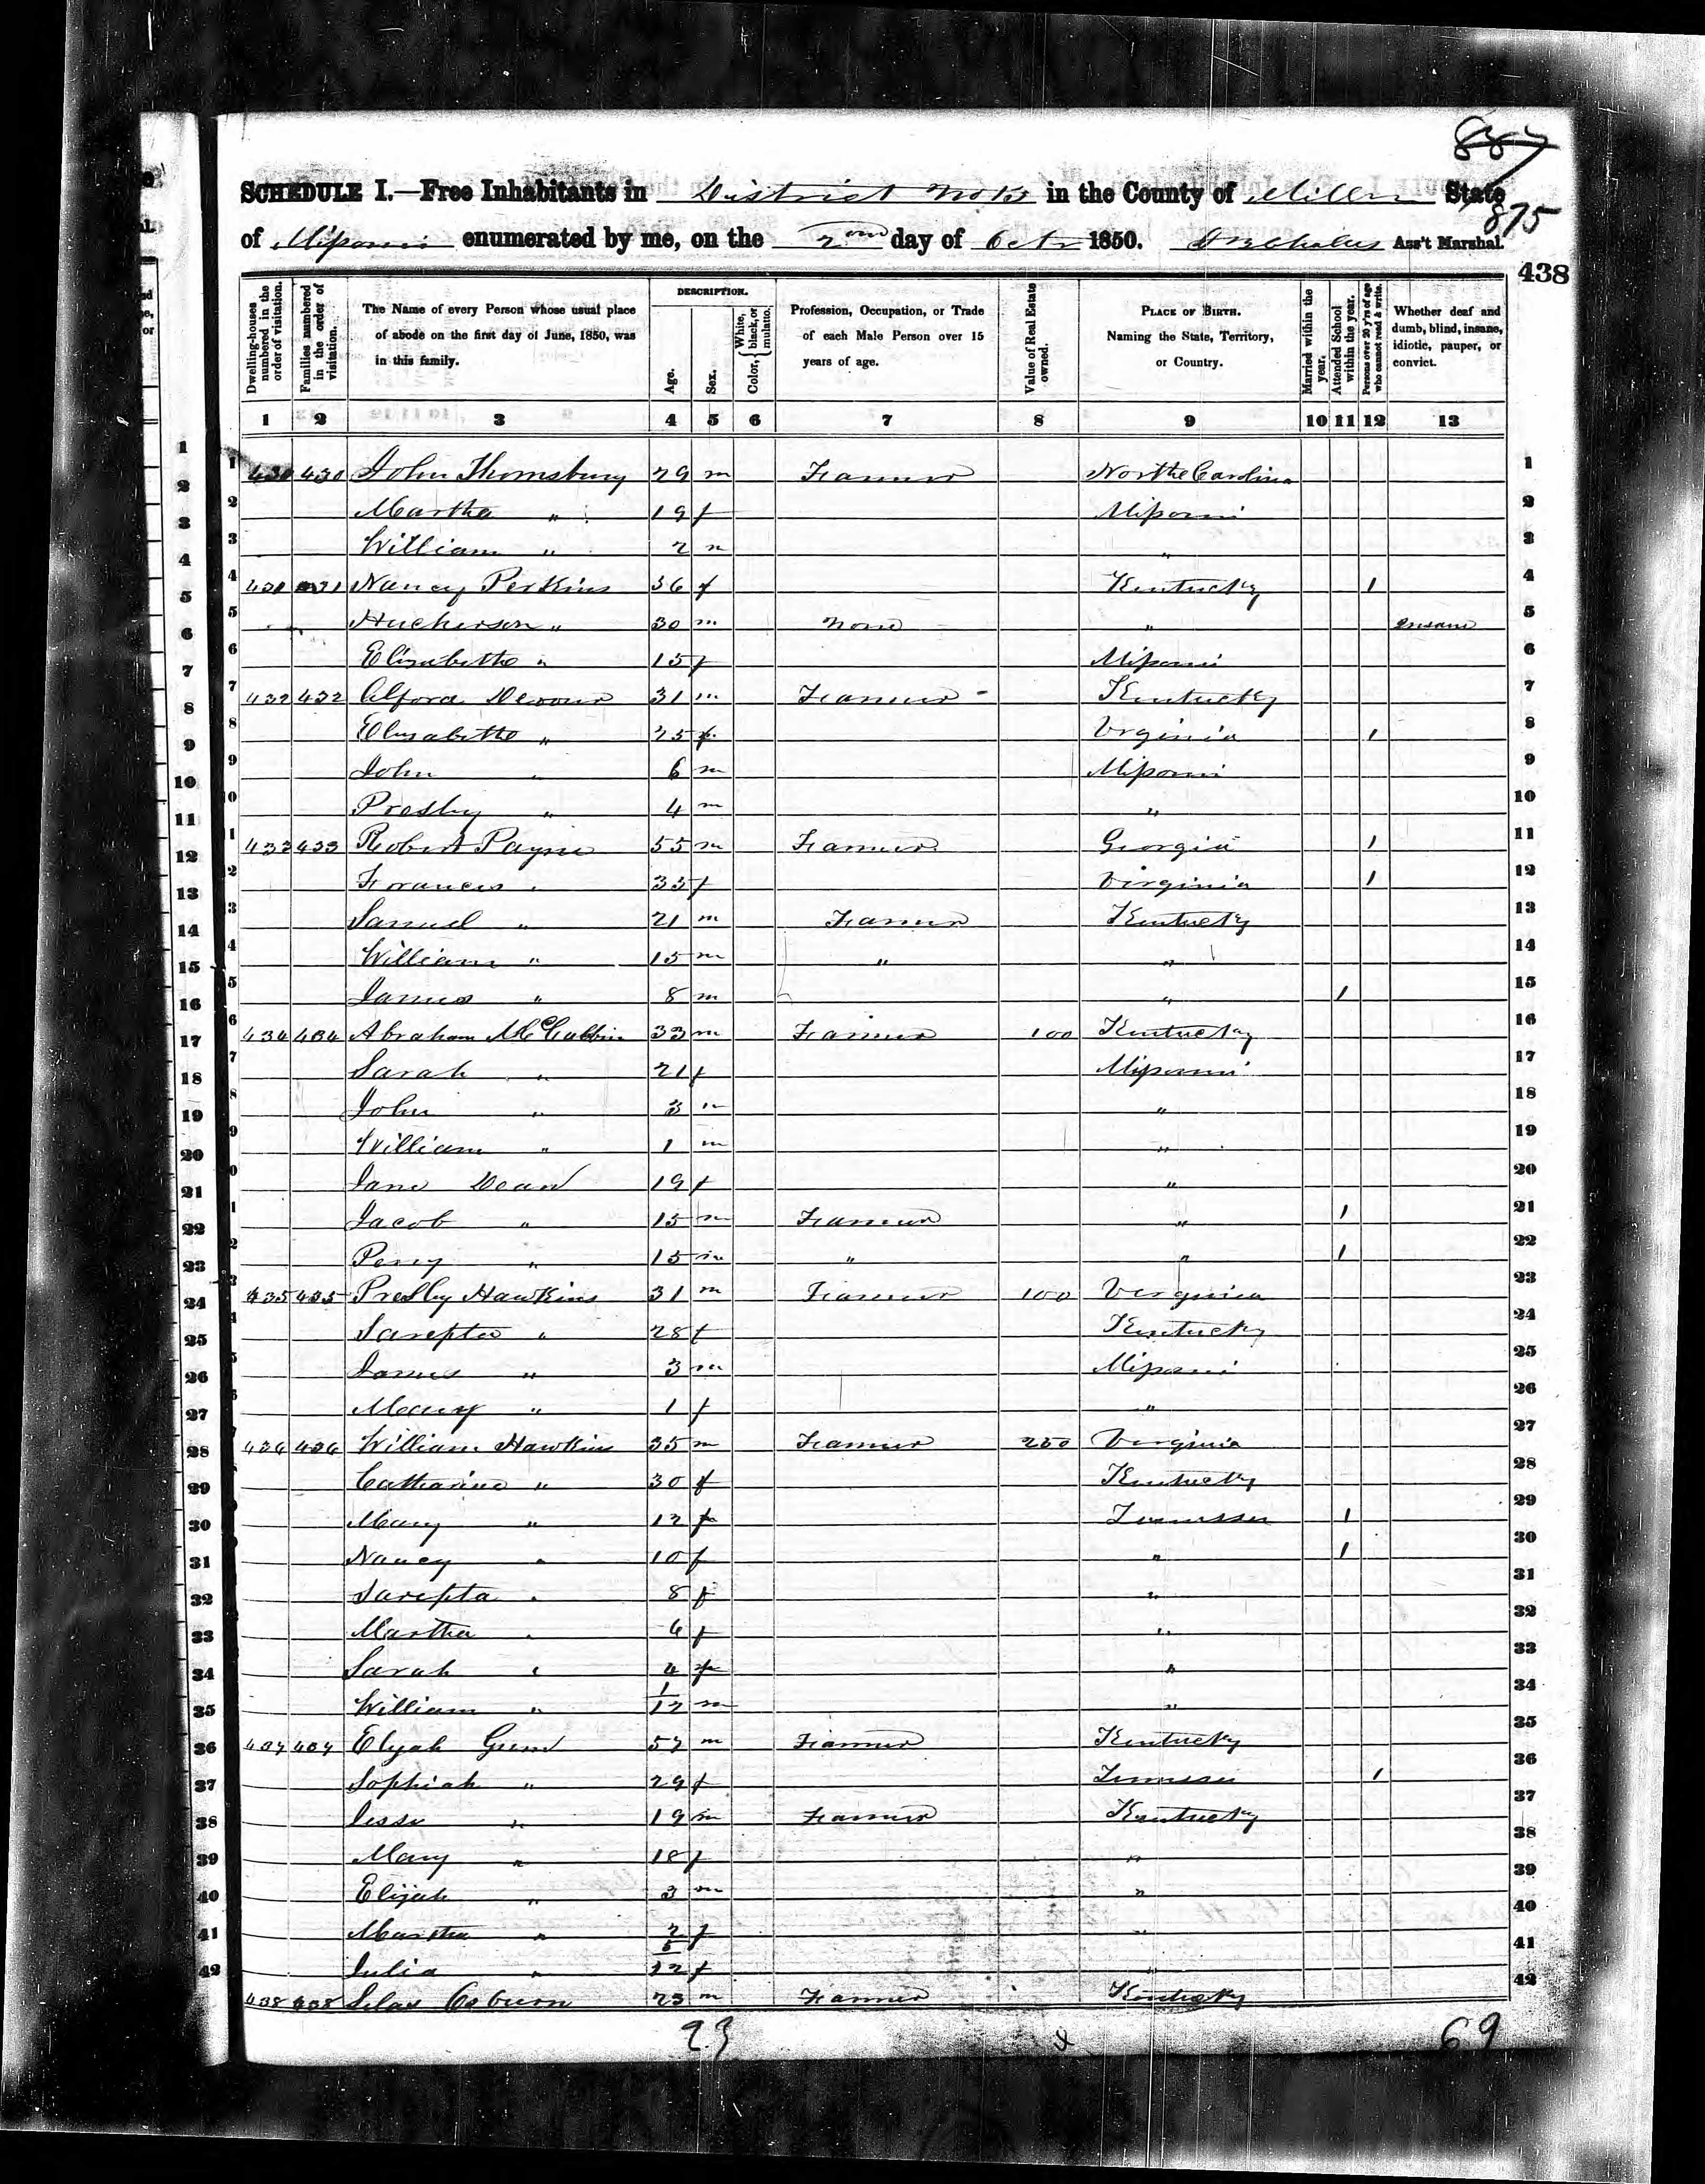 887
SCHEDULE I.—Free Inhabitants in District No 13 in the County of Miller State
875
of Missouri enumerated by me, on the 2nd day of Octr 1850. Ass't Marshal.
438
Dwelling-houses numbered in the order of visitation.
Families numbered in the order of visitation.
The Name of every Person whose usual place of abode on the first day of June, 1850, was in this family.
DESCRIPTION.
Age.
Sex.
Color, { White, black, or mulatto.
Profession, Occupation, or Trade of each Male Person over 15 years of age.
Value of Real Estate owned.
PLACE OF BIRTH. Naming the State, Territory, or Country.
Married within the year.
Attended School within the year.
Persons over 20 y'rs of age who cannot read & write.
Whether deaf and dumb, blind, insane, idiotic, pauper, or convict.
1 2 3 4 5 6 7 8 9 10 11 12 13
1 430 430 John Thornsbury 29 m Farmer North Carolina 1
2 Martha " 19 f Missouri 2
3 William " 2 m " 3
4 431 431 Nancy Perkins 36 f Kentucky 1 4
5 Hucherson " 30 m None " Insane 5
6 Elizabethe " 15 f Missouri 6
7 432 432 Alford 31 m Farmer Kentucky 7
8 Elizabethe " 25 f Virginia 1 8
9 John " 6 m Missouri 9
10 Presley " 4 m " 10
11 433 433 Robert Payne 55 m Farmer Georgia 1 11
12 Frances " 35 f Virginia 1 12
13 Samuel " 21 m Farmer Kentucky 13
14 William " 15 m " " 14
15 James " 8 m " 1 15
16 434 434 Abraham McCubbin 33 m Farmer 100 Kentucky 16
17 Sarah " 21 f Missouri 17
18 John " 3 m " 18
19 William " 1 m " 19
20 Jane Dean 19 f " 20
21 Jacob " 15 m Farmer " 1 21
22 Perry " 15 m " " 1 22
23 435 435 Presley Hawkins 31 m Farmer 100 Virginia 23
24 Sarepta " 28 f Kentucky 24
25 James " 3 m Missouri 25
26 Mary " 1 f " 26
27 436 436 William Hawkins 35 m Farmer 250 Virginia 27
28 Catharine " 30 f Kentucky 28
29 Mary " 12 f Tennessee 1 29
30 Nancy " 10 f " 1 30
31 Sarepta " 8 f " 31
32 Martha " 6 f " 32
33 Sarah " 4 f " 33
34 William " 1/12 m " 34
35 437 437 Elijah Gum 57 m Farmer Kentucky 35
36 Sophiah " 29 f Tennessee 1 36
37 Jesse " 19 m Farmer Kentucky 37
38 Mary " 18 f " 38
39 Elijah " 3 m " 39
40 Martha " 2 f " 40
41 Julia " 5/12 f " 41
42 438 438 Silas Coburn 23 m Farmer Kentucky 42
23
69